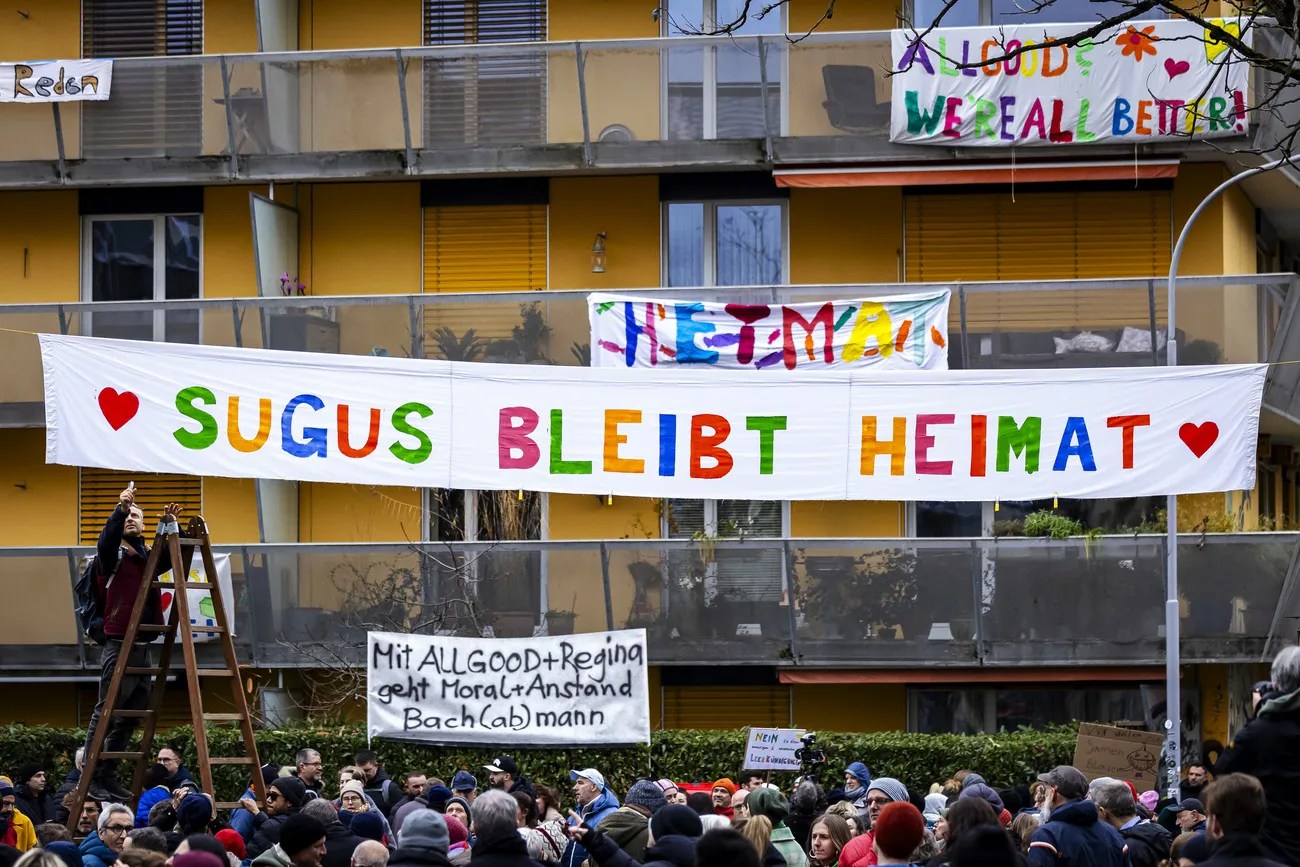 Reden
ALLGOOD?
WE'RE ALL BETTER!
HEIMAT
SUGUS BLEIBT HEIMAT
Mit ALLGOOD+Regina
geht Moral+Anstand
Bach(ab)mann
NEIN
LEERKÜNDIGUNG